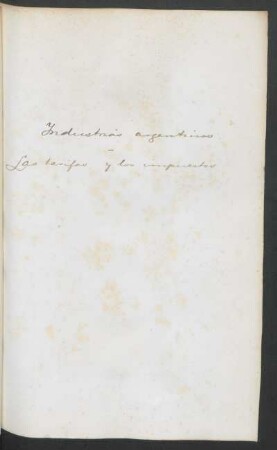 Industrias argentinas
–
Las tarifas y los impuestos